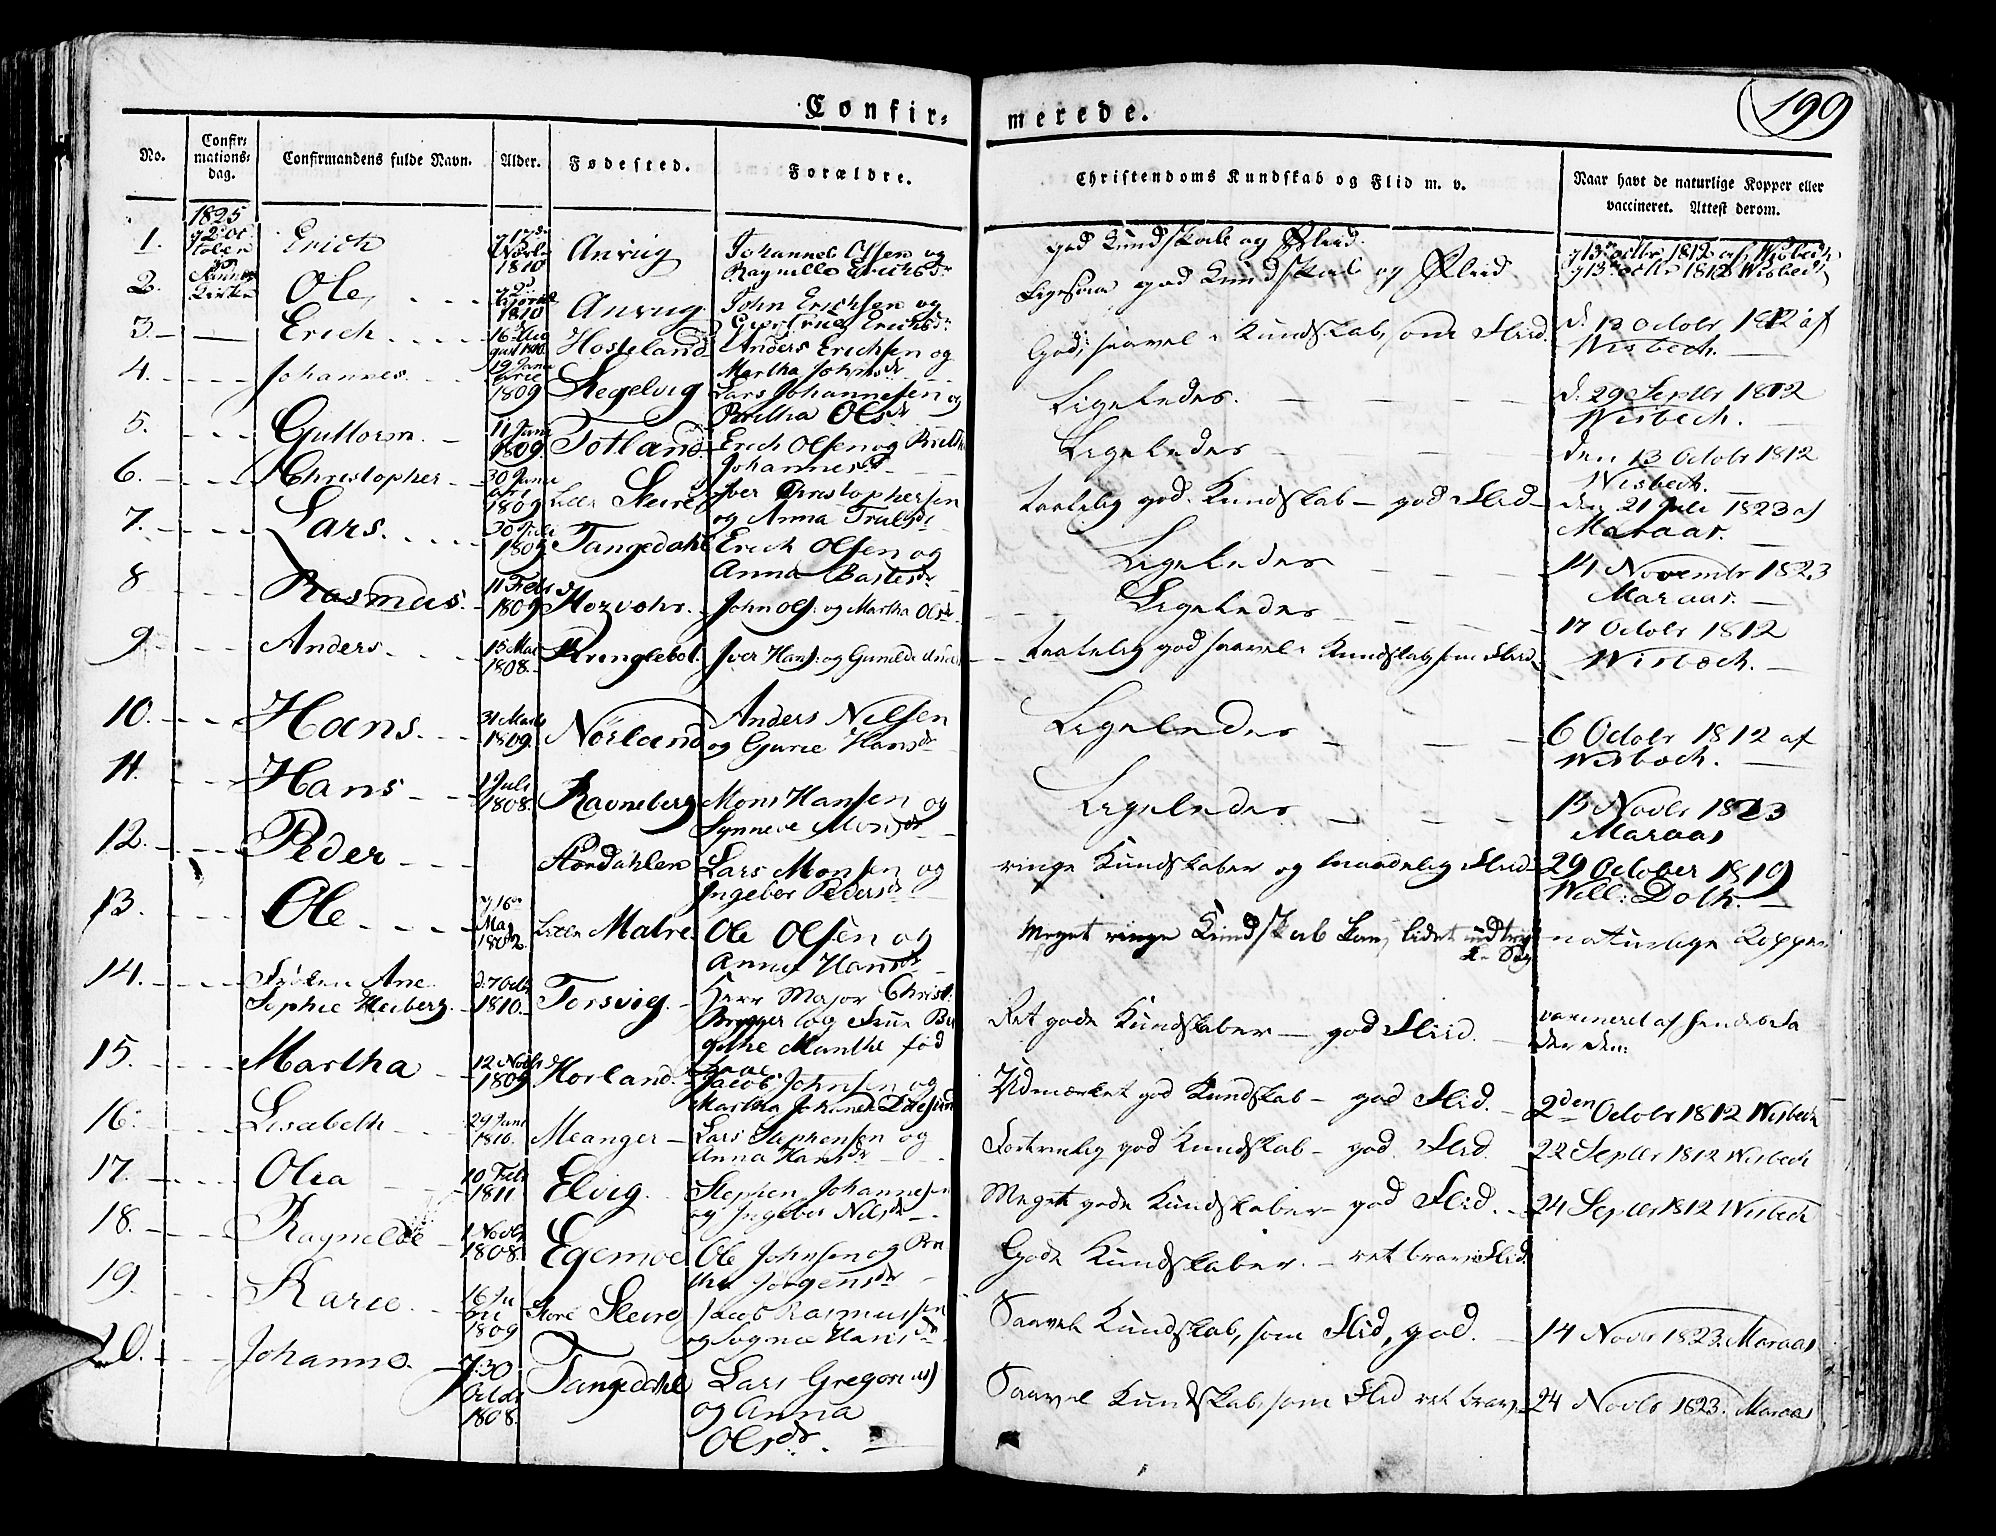 Confir- merede.
199
No.
Confir-
mations-
dag.
Confirmandens fulde Navn.
Alder.
Fødested.
Forældre.
Christendoms Kundskab og Flid m. v.
Naar havt de naturlige Kopper eller
vaccineret. Attest derom.
1825
1. Erich 1810 Anvug Johannes Olsen og god Kundskab og Fliid. 13 octbr 1812 af Wisbech
2. Ole, 1810 Anvug John Erichsen og Ligesaa god Kundskab og Fliid 13 octbr 1812 Wisbech
3. Erich 16 Au
gust 1810 Hosteland Anders Erichsen og
Martha Johnsdr God, saavel i Kundskab, som Flid. d. 13 Octobr 1812 af
Wisbech.
4. Johannes. 19 Janu
arie
1809 Slegelvig Lars Johannesen og
Britha Olsdr Ligeledes. d. 29 Septbr 1812
Wisbech.
5. Guttorm. 11 Janu
1809 Totland. Erich Olsen og Brithe
Johannesdr Ligeledes den 13 Octobr 1812
Wisbech.
6. Christopher 30 Janu
1809 Lille Skeire Iver Christophersen
og Anna Trulsdr taalelig god Kundskab - god Flid den 21 Juli 1823 af
Maraas.
7. Lars. 1809 Tangedahl Erich Olsen og
Anna Bastesdr Ligeledes 14 Novembr 1823
Maraas.
8 Rasmus. 11 Febr
1809 John Ols: og Martha Olsdr Ligeledes 17 Octobr 1812
Wisbech.
9. Anders 15 Mai
1808. Kringlebot. Iver Hans: og Gunilde taalelig god saavel i Kundskab som Flid
10. Hans. 31 Marts
1809. Nörland Anders Nilsen
og Gurie Hansdr Ligeledes 6 Octobr 1812 af
Wisbech.
11. Hans 1 Juli
1808. Ravneberg Mons Hansen og
Synneve Monsdr Ligeledes 13 Novbr 1823
Maraas
12. Peder Stordahlen Lars Monsen og
Ingebor Pedersdr ringe Kundskaber og maadelig Flid 29 October 1819
Will: Dolk.
13. Ole 16
Maj
1802. Litle Matre. Ole Olsen og
Anna Hansdr Meget ringe Kundskab naturlige Kopper
14. Frölen Ane
Sophie Heiberg. 27 Octbr
1810. Torsvig. Herr Major Christ:
og Frue
Manthe född Ret gode Kundskaber - god Fliid. vaccineret af
15. Martha 12 Novbr
1809. Horland. Jacob Johnsen og
Martha Udmærket god Kundskab - god Flid. 2den Octobr 1812 Wisbech
16. Lisabeth 29 Juni
1810. Meanger Lars Stephensen og
Anna Hansdr Fortrinlig god Kundskab - god Flid. 22 Septbr 1812 Wisbech
17. Olia 10 Febr
1811. Elvig. Stephen Johannesen
og Ingebor Nilsdr Meget gode Kundskaber - god Flid. 24 Septbr 1812 Wisbech
18. Ragnelde 1 Novbr
1808. Egemoe Ole Johnsen og Bri
tha Jörgensdr Gode Kundskaber. - ret brav Flid
19. Karie 16 Ju
1809 Store Skeire Jacob Rasmussen
og Sogna Hansdr Saavel Kundskab, som Flid, god. 14 Novbr 1823. Maraas
20. Johanne. 30
Octobr
1808. Tangedahl Lars Gregorius
og Anna
Olsdr. Saavel Kundskab, som Flid ret brav. 24 Novbr 1823. Maraas